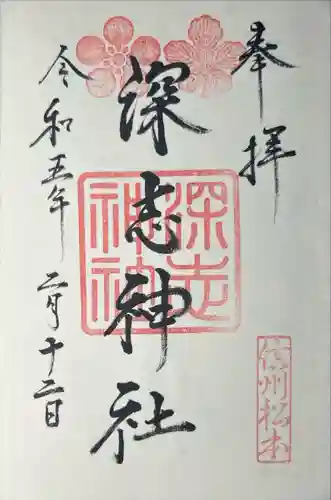 奉拝
深志神社
令和五年 二月十二日
深志神社
信州松本